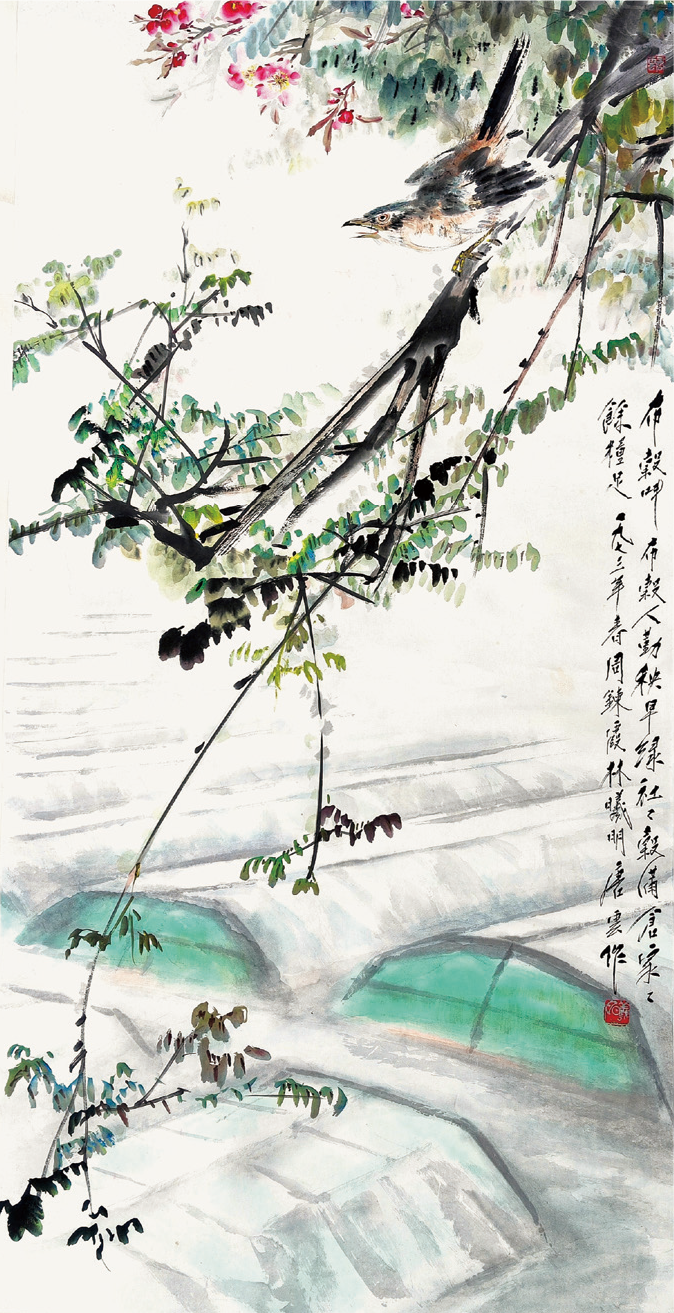 布穀叫布穀人勤秧早綠社〻穀滿倉家〻
餘糧足一九七三年春周鍊霞林曦明唐雲作